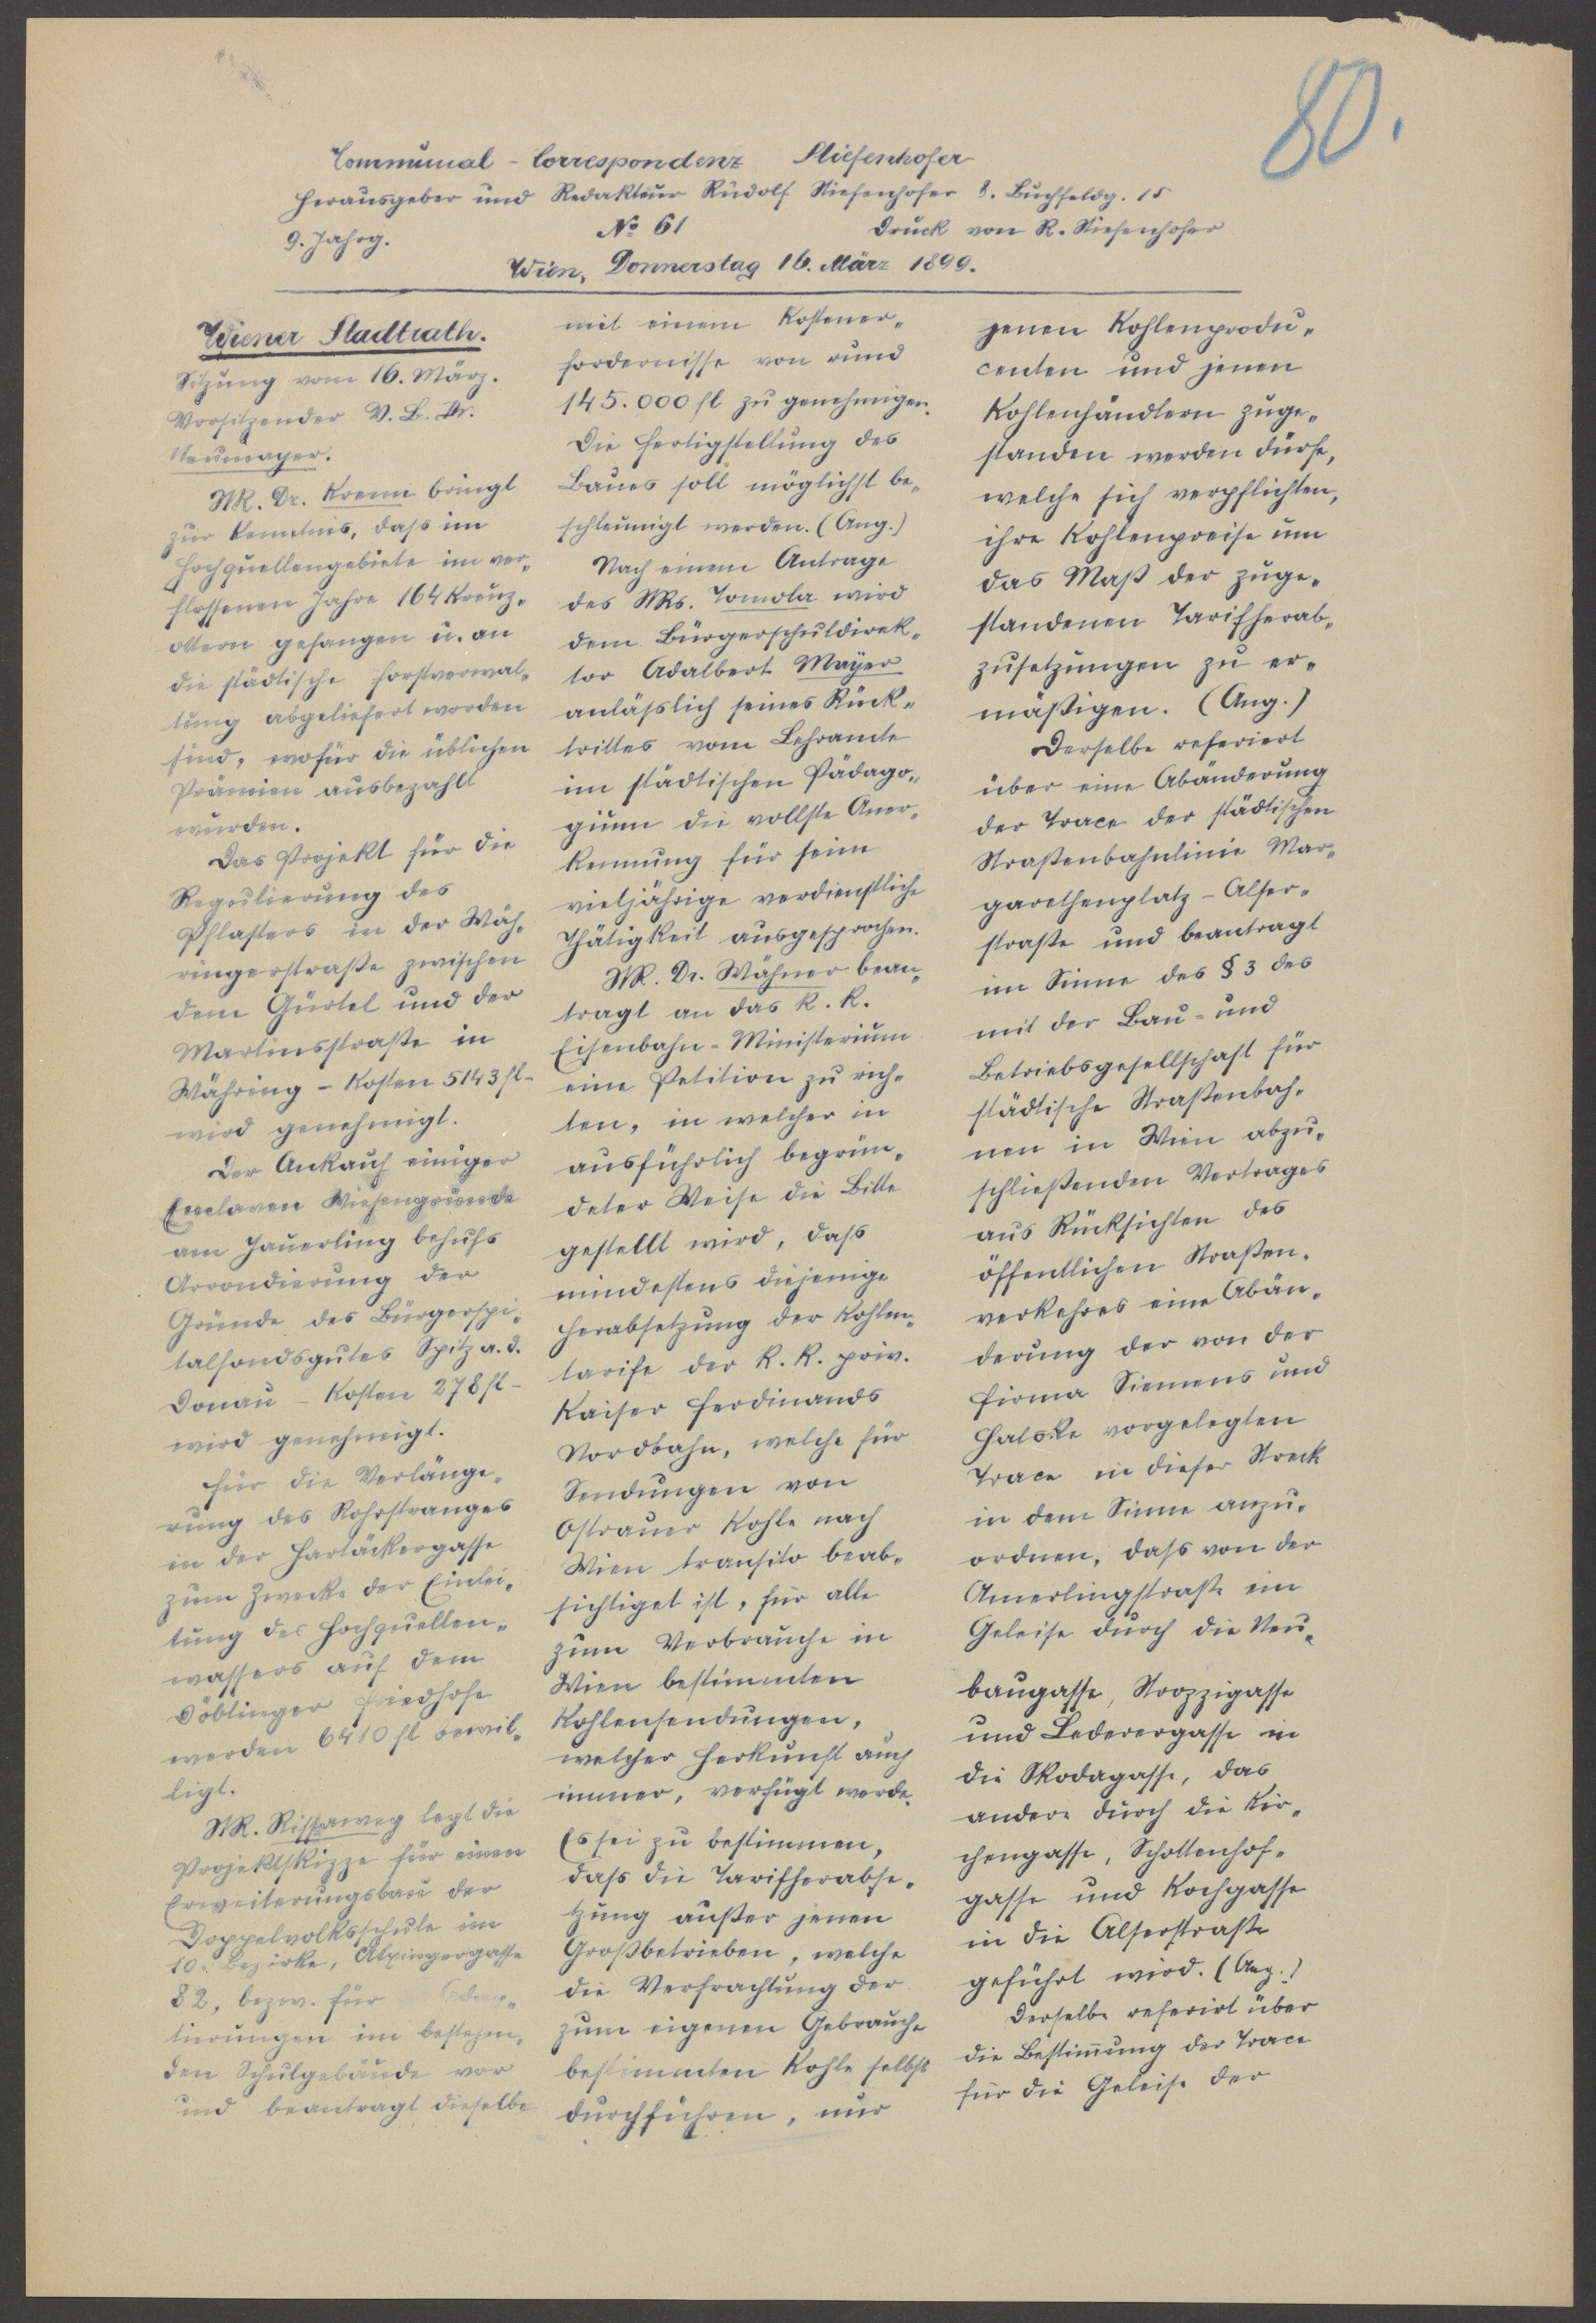 80.
Communal-Correspondenz Stiefenhofer
Herausgeber und Redakteur Rudolf Stiefenhofer 8. Buchfeldg. 15
9. Jahrg. No 61 Druck von R. Stiefenhofer
Wien, Donnerstag 16. März 1899.
Wiener Stadtrath.
Sitzung vom 16. März.
Vorsitzender V. B. Dr.
Neumayer.
StR. Dr. Krenn bringt
zur Kenntnis, daß im
Hochquellengebiete im ver-
flossenen Jahre 164 Kreuz-
ottern gefangen u. an
die städtische Forstverwal-
tung abgeliefert worden
sind, wofür die üblichen
Prämien ausbezahlt
wurden.
Das Projekt für die
Regulierung des
Pflasters in der Wäh-
ringerstraße zwischen
dem Gürtel und der
Martinsstraße in
Währing - Kosten 5143 fl -
wird genehmigt.
Der Ankauf einiger
Enclaven Wiesengründe
am Jauerling behufs
Arrondierung der
Gründe des Bürgerspi-
talfondsgutes Spitz a. d.
Donau - Kosten 278 fl -
wird genehmigt.
Für die Verlänge-
rung des Rohrstranges
in der Hartäckergasse
zum Zwecke der Einlei-
tung des Hochquellen-
wassers auf dem
Döblinger Friedhofe
werden 6410 fl bewil-
ligt.
StR. Rissaweg legt die
Projektskizze für einen
Erweiterungsbau der
Doppelvolksschule im
10. Bezirke, Alxingergasse
82, bezw. für Adap-
tierungen im bestehen-
den Schulgebäude vor
und beantragt dieselbe
mit einem Kostener-
fordernisse von rund
145.000 fl zu genehmigen.
Die Fertigstellung des
Baues soll möglichst be-
schleunigt werden. (Ang.)
Nach einem Antrage
des StRs. Tomola wird
dem Bürgerschuldirek-
tor Adalbert Mayer
anläßlich seines Rück-
trittes vom Lehramte
im städtischen Pädago-
gium die vollste Aner-
kennung für seine
vieljährige verdienstliche
Thätigkeit ausgesprochen.
StR. Dr. Wähner bean-
tragt an das k. k.
Eisenbahn-Ministerium
eine Petition zu rich-
ten, in welcher in
ausführlich begrün-
deter Weise die Bitte
gestellt wird, daß
mindestens diejenige
Herabsetzung der Kohlen-
tarife der k. k. priv.
Kaiser Ferdinands
Nordbahn, welche für
Sendungen von
Ostrauer Kohle nach
Wien transito beab-
sichtiget ist, für alle
zum Verbrauche in
Wien bestimmten
Kohlensendungen,
welcher Herkunft auch
immer, verfügt werde.
Es sei zu bestimmen,
daß die Tarifherabse-
tzung außer jenen
Großbetrieben, welche
die Verfrachtung der
zum eigenen Gebrauche
bestimmten Kohle selbst
durchführen, nur
jenen Kohlenprodu-
centen und jenen
Kohlenhändlern zuge-
standen werden dürfe,
welche sich verpflichten,
ihre Kohlenpreise um
das Maß der zuge-
standenen Tarifherab-
zusetzungen zu er-
mäßigen. (Ang.)
Derselbe referiert
über eine Abänderung
der Trace der städtischen
Straßenbahnlinie Mar-
garethenplatz-Alser-
straße und beantragt
im Sinne des § 3 des
mit der Bau- und
Betriebsgesellschaft für
städtische Straßenbah-
nen in Wien abzu-
schließenden Vertrages
aus Rücksichten des
öffentlichen Straßen-
verkehres eine Abän-
derung der von der
Firma Siemens und
Halske vorgelegten
Trace in dieser Streck
in dem Sinne anzu-
ordnen, daß von der
Amerlingstraße ein
Geleise durch die Neu-
baugasse, Strozzigasse
und Lederergasse in
die Skodagasse, das
andere durch die Kir-
chengasse, Schottenhof-
gasse und Kochgasse
in die Alserstraße
geführt wird. (Ang.)
Derselbe referirt über
die Bestim̄ung der Trace
für die Geleise der